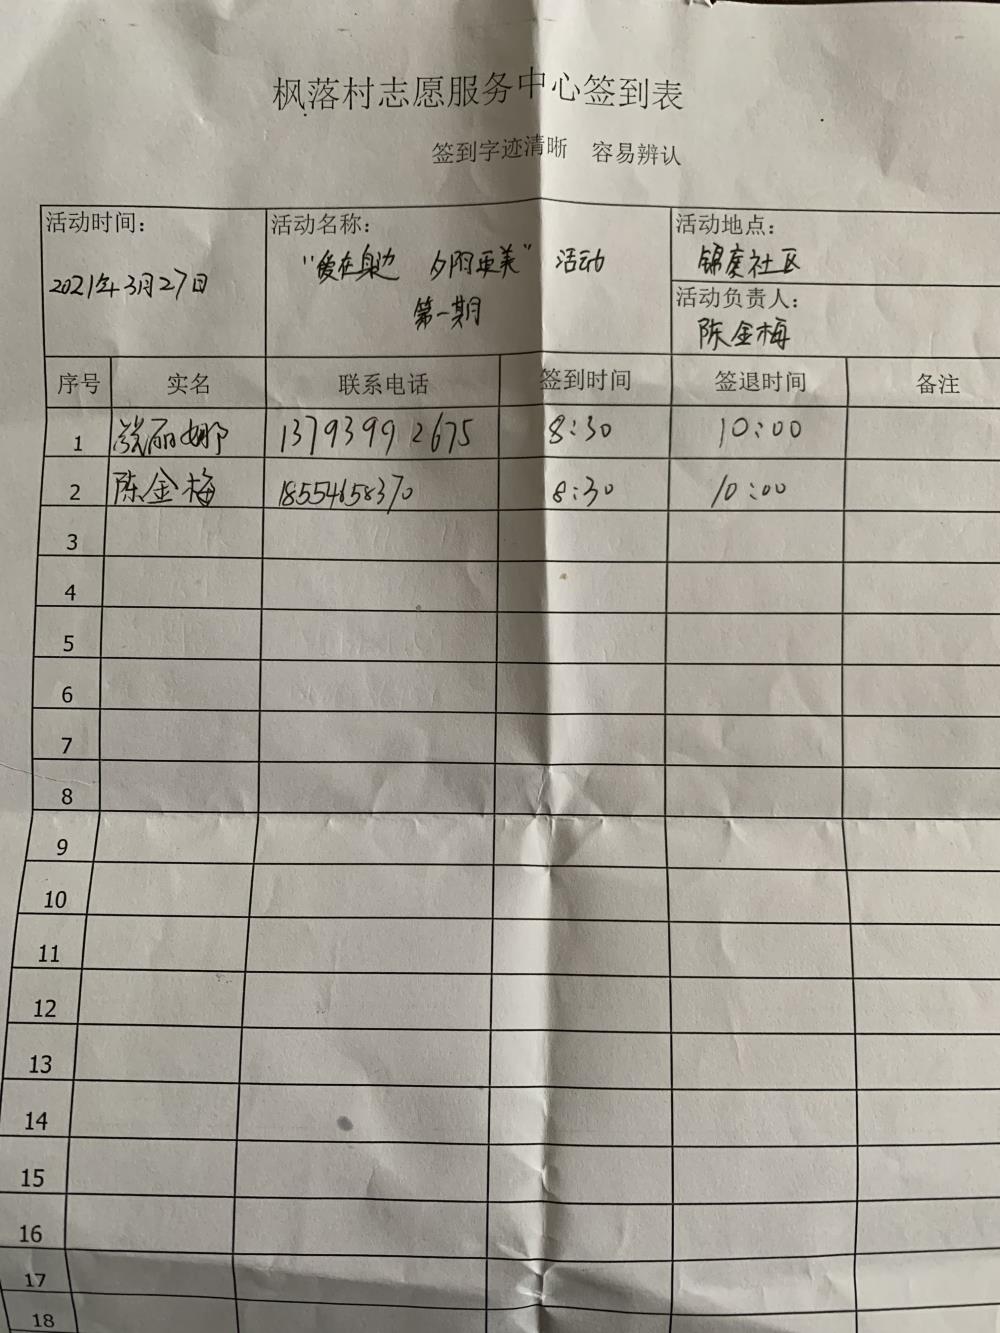 枫落村志愿服务中心签到表
签到字迹清晰 容易辨认
活动时间:
2021年3月27日
活动名称:
“爱在身边 夕阳更美”活动
第一期
活动地点:
锦度社区
活动负责人:
陈金梅
序号 实名 联系电话 签到时间 签退时间 备注
1 丽娜 13793992675 8:30 10:00
2 陈金梅 18554658370 8:30 10:00
3
4
5
6
7
8
9
10
11
12
13
14
15
16
17
18